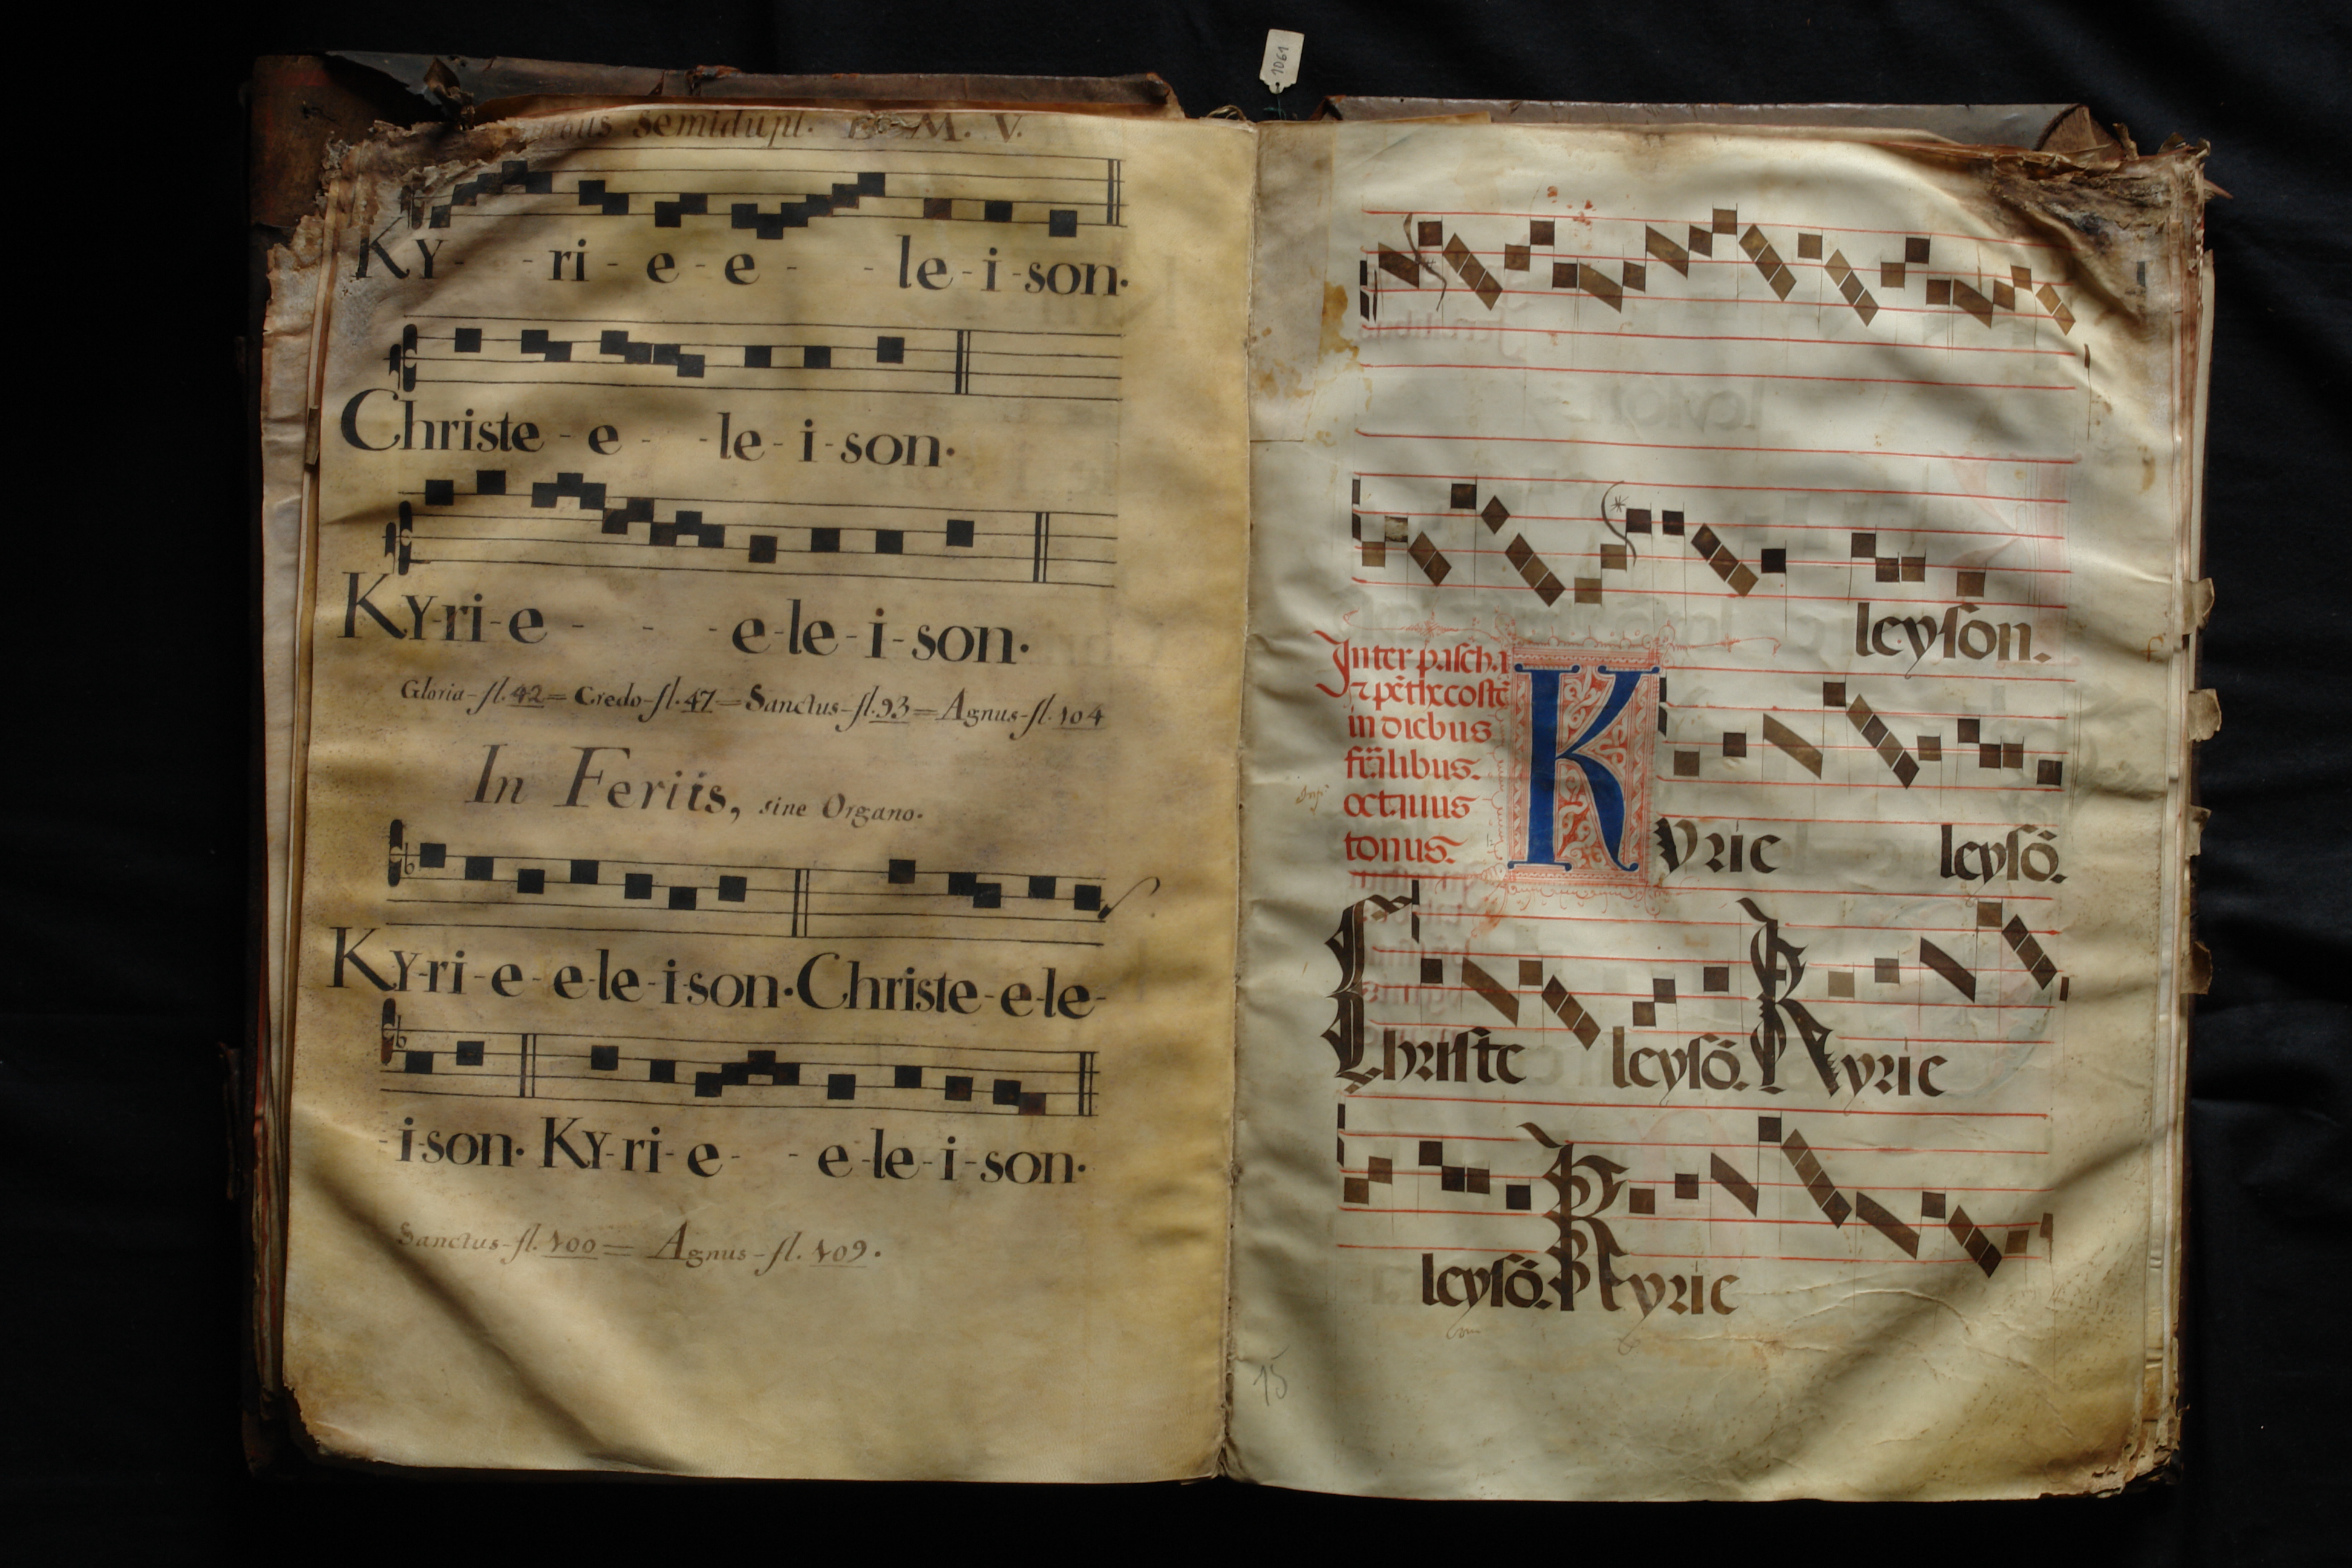 1061
Semidupl. M. V.
KY - - ri - e - e - - le - i - son.
Christe - e - - le - i - son.
KY-ri-e - - - e-le-i-son.
Gloria-fl. 42 = Credo-fl. 47 = Sanctus-fl. 93 = Agnus-fl. 104
In Feriis, sine Organo.
KY-ri-e-e-le-i-son. Christe-e-le-
-i-son. KY-ri-e - - e-le-i-son.
Sanctus-fl. 100 = Agnus-fl. 109.
leyſon.
Inter pascha
⁊ pẽthecostẽ
in diebus
ferialibus.
octauus
tonus.
Kyrie leyſõ.
Christe leyſõ. Kyrie
leyſõ. Kyrie
15